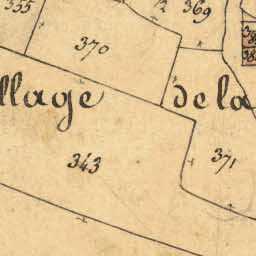 355
369
370
llage de la
343
371